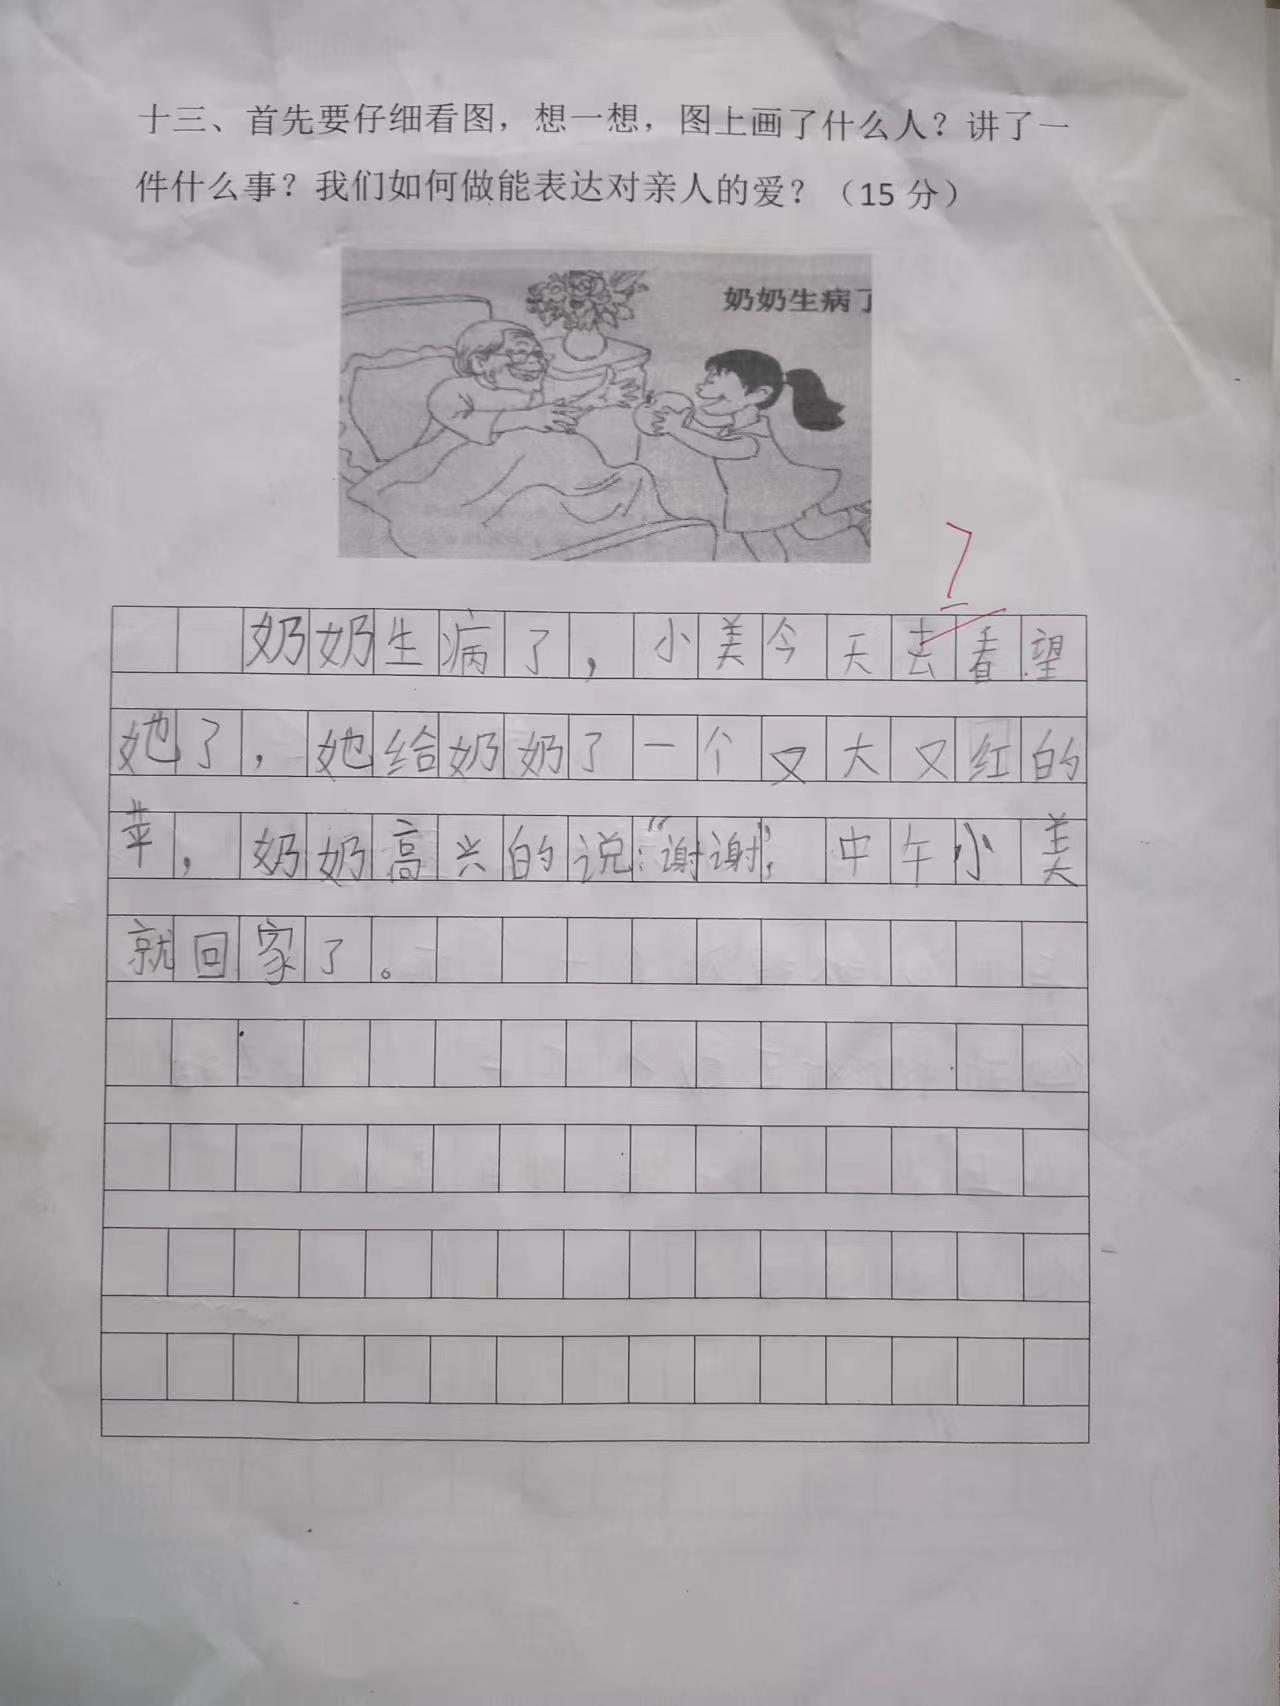 十三、首先要仔细看图，想一想，图上画了什么人？讲了一
件什么事？我们如何做能表达对亲人的爱？（15 分）
奶奶生病了
7
奶奶生病了，小美今天去看望
她了，她给奶奶了一个又大又红的
苹，奶奶高兴的说：“谢谢”，中午小美
就回家了。